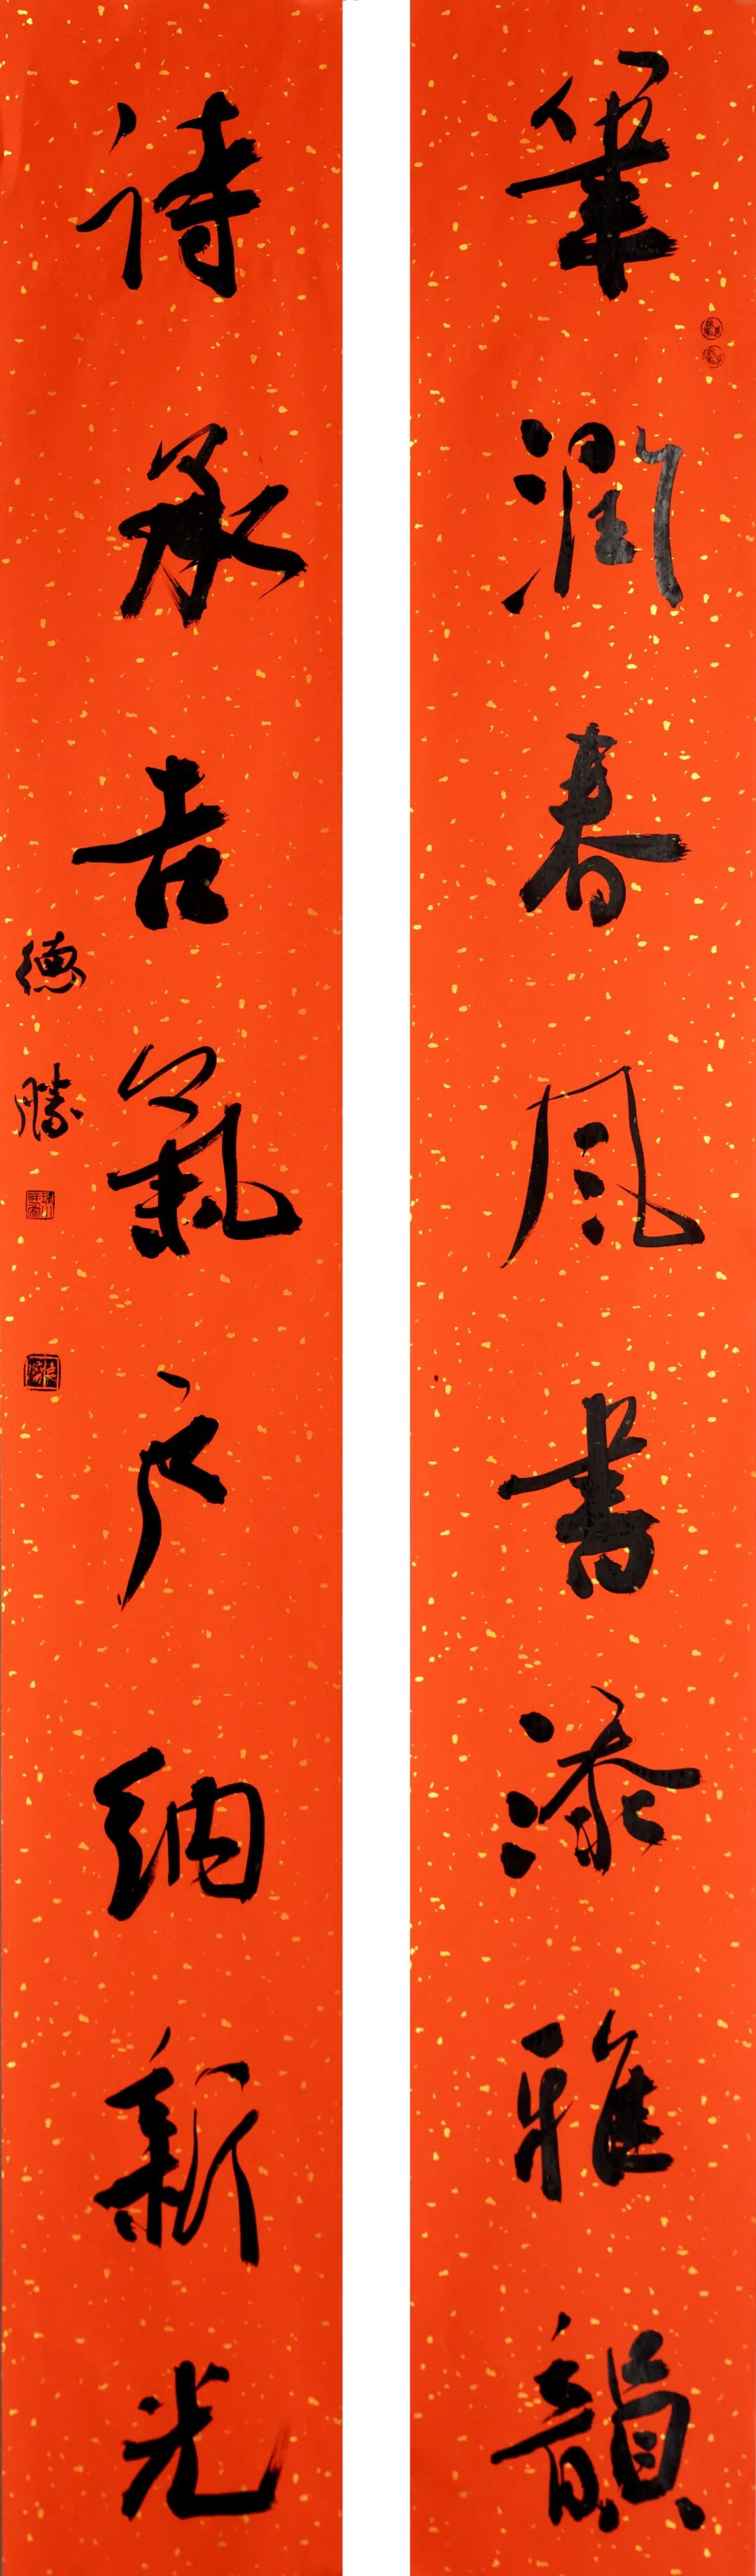 筆潤春风書添雅韻
詩承吉氣户纳新光
德勝